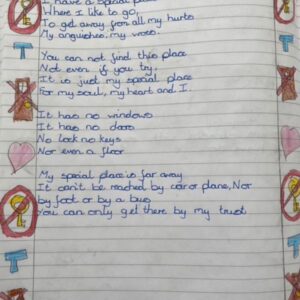 I have a special place
Where I like to go,
To get away from all my hurts
My anguishes, my woes.
You can not find this place
Not even if you try,
It is just my special place
For my soul, my heart and I.
It has no windows
It has no doors
No lock no keys
Nor even a floor
My special place is far away
It can't be reached by car or plane, Nor
by foot or by a bus
You can only get there by my trust